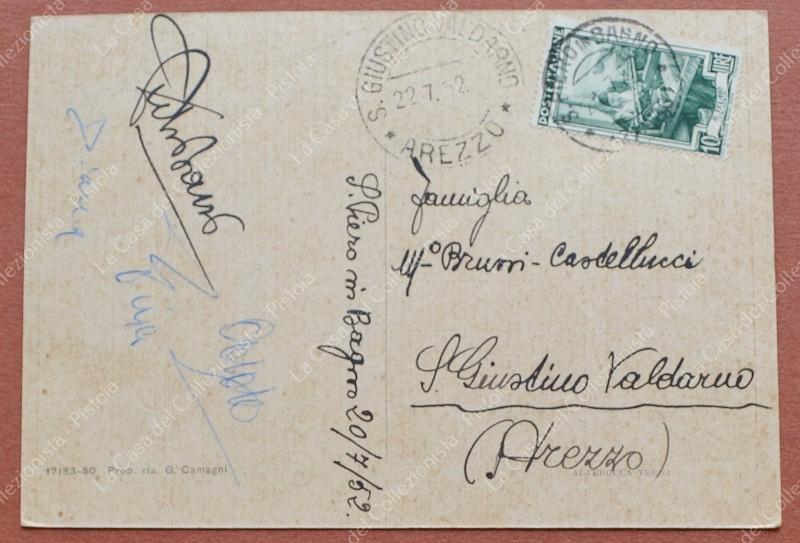 S. GIUSTINO VALDARNO
22.7.52
* AREZZO *
POSTE ITALIANE
LIRE
10
Famiglia
M.º Bruni - Castellucci
S. Giustino Valdarno
(Arezzo)
S. Piero in Bagno 20/7/52.
Diana
17183-50 Prop. ris. G. Camagni
ALTEROCCA TERNI
La Casa del Collezionista - Pistoia